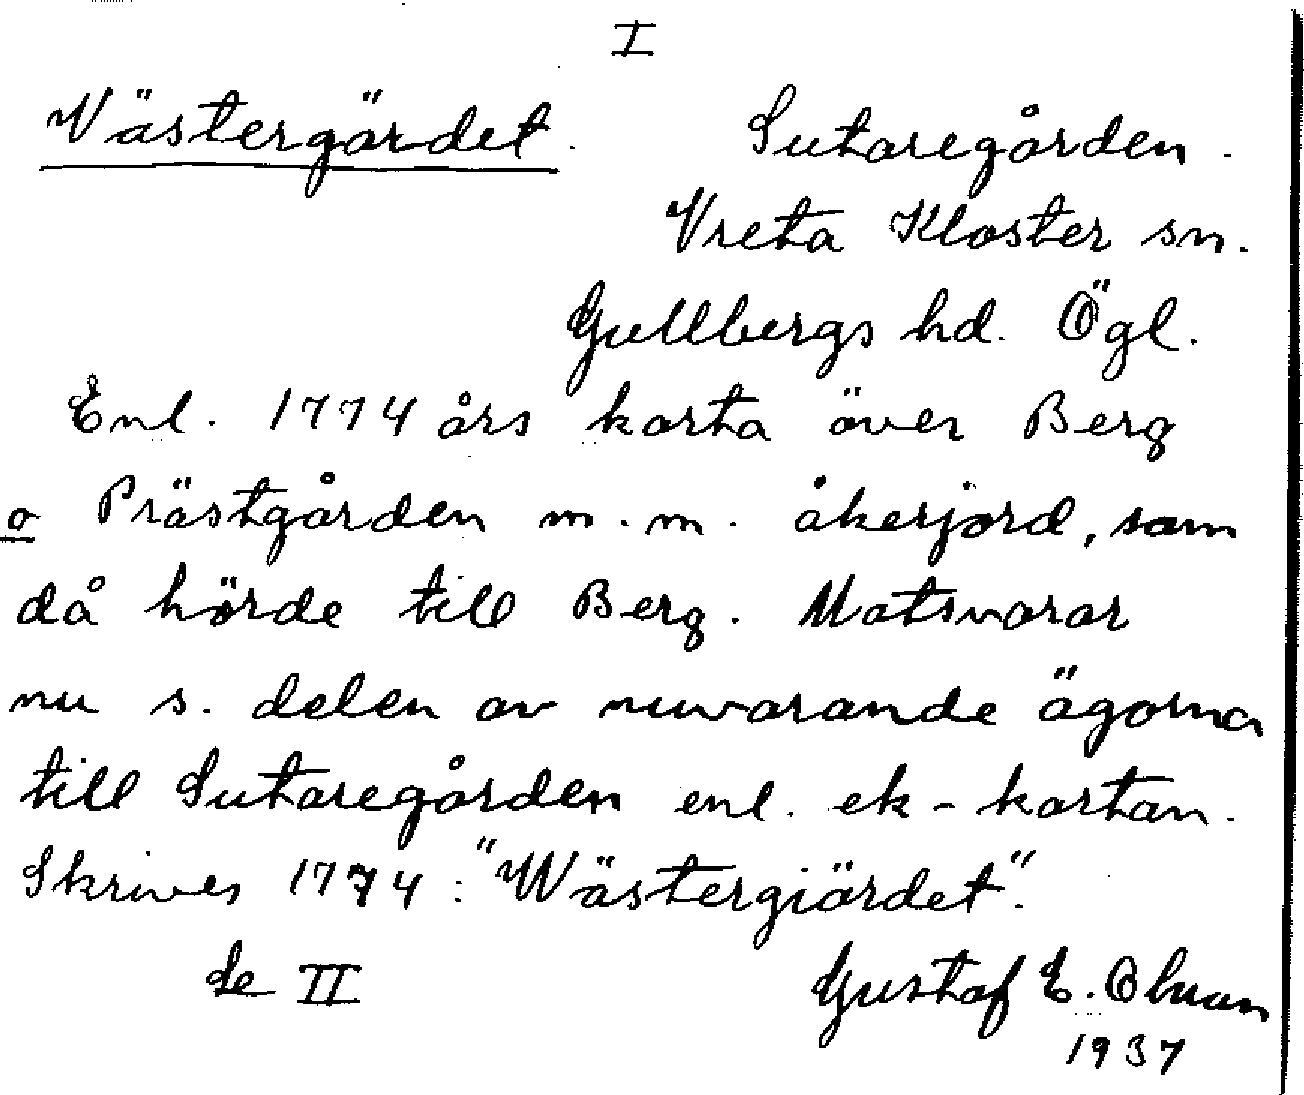 I
Västergärdet. Sutaregården.
Vreta Kloster sn.
Gullbergs hd. Ögl.
Enl. 1774 års karta över Berg
o Prästgården m.m. åkerjord, som
då hörde till Berg. Motsvarar
nu s. delen av nuvarande ägorna
till Sutaregården enl. ek-kartan.
Skrives 1774: "Wästergiärdet".
Se II Gustaf E. Olsson
1937